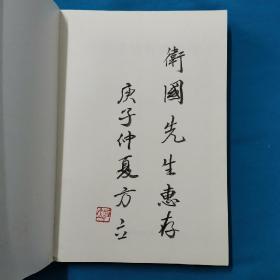 衛國先生惠存
庚子仲夏方立